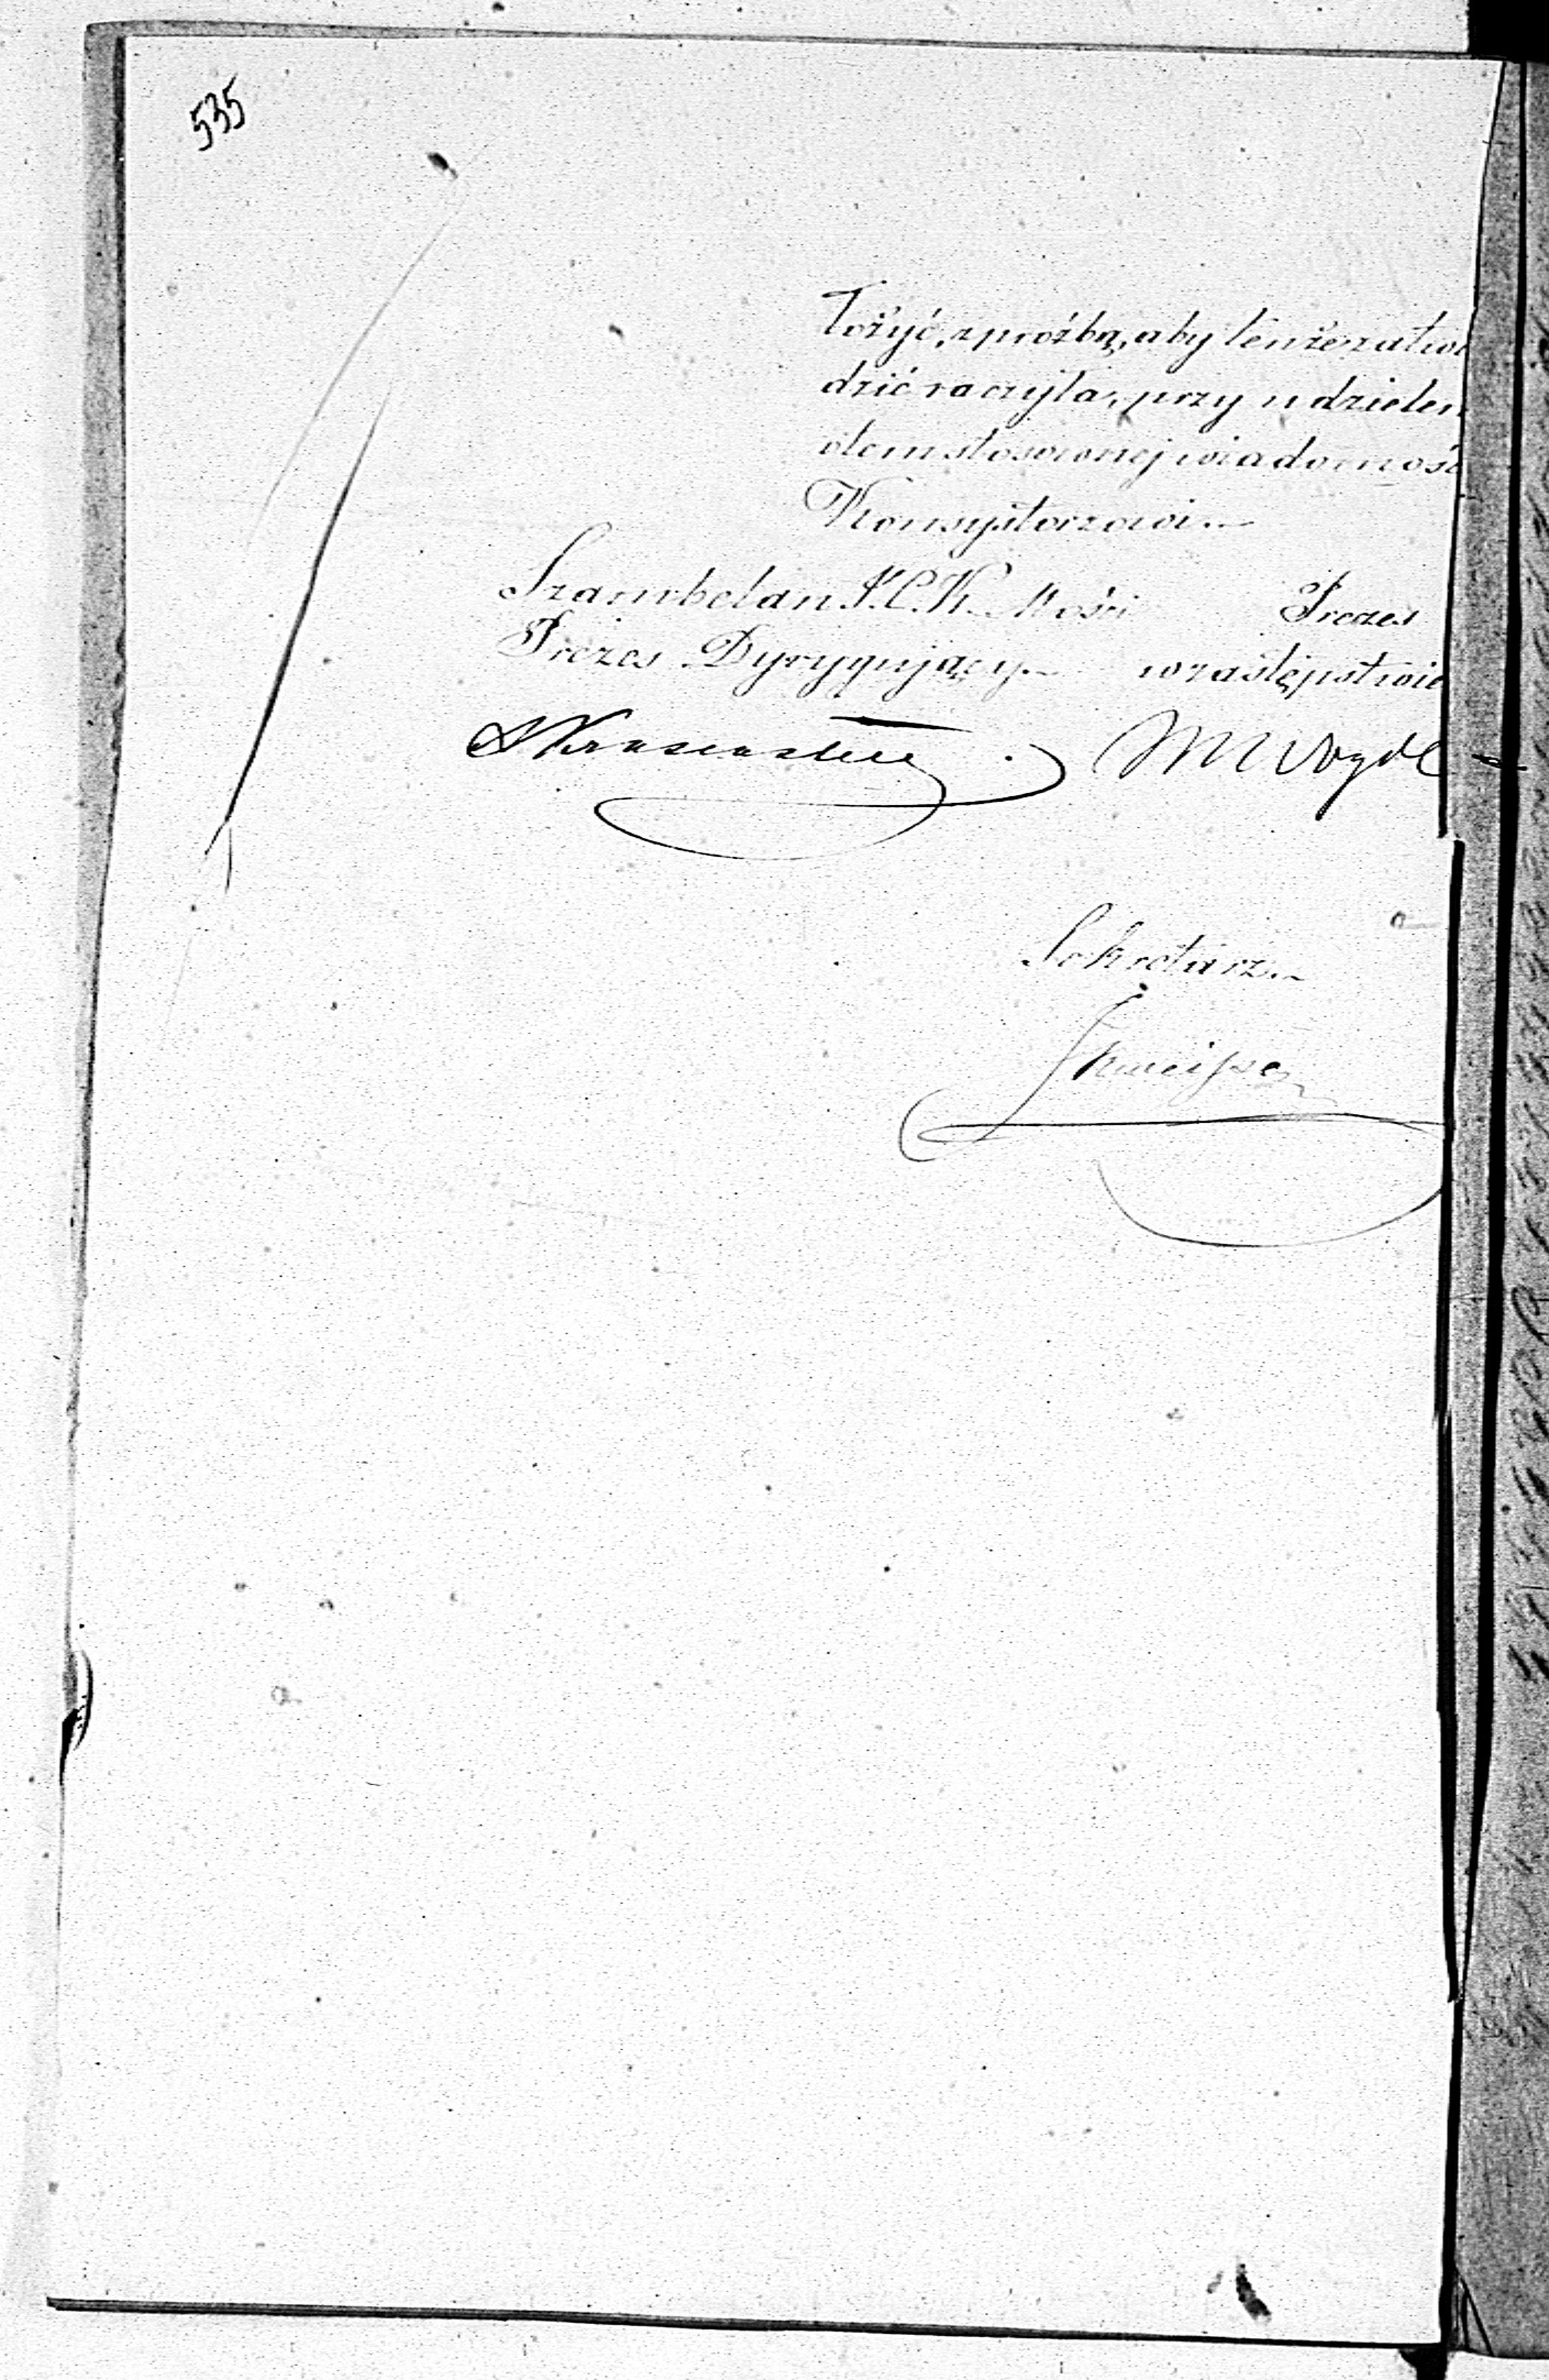 535
łożyć, z prośbą, aby tenże zatwi
dzić raczyła, przy udzielen
o tem stosownej wiadomośc
Konsystorzowi.—
Szambelan J. C. K. Mości Prezes
Prezes Dyrygujący.— w zastępstwie
Sekretarz.—